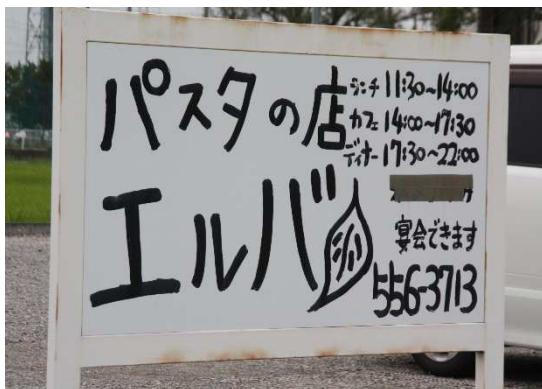 パスタの店
エルバ
ランチ 11:30~14:00
カフェ 14:00~17:30
ディナー 17:30~22:00
宴会できます
556-3713